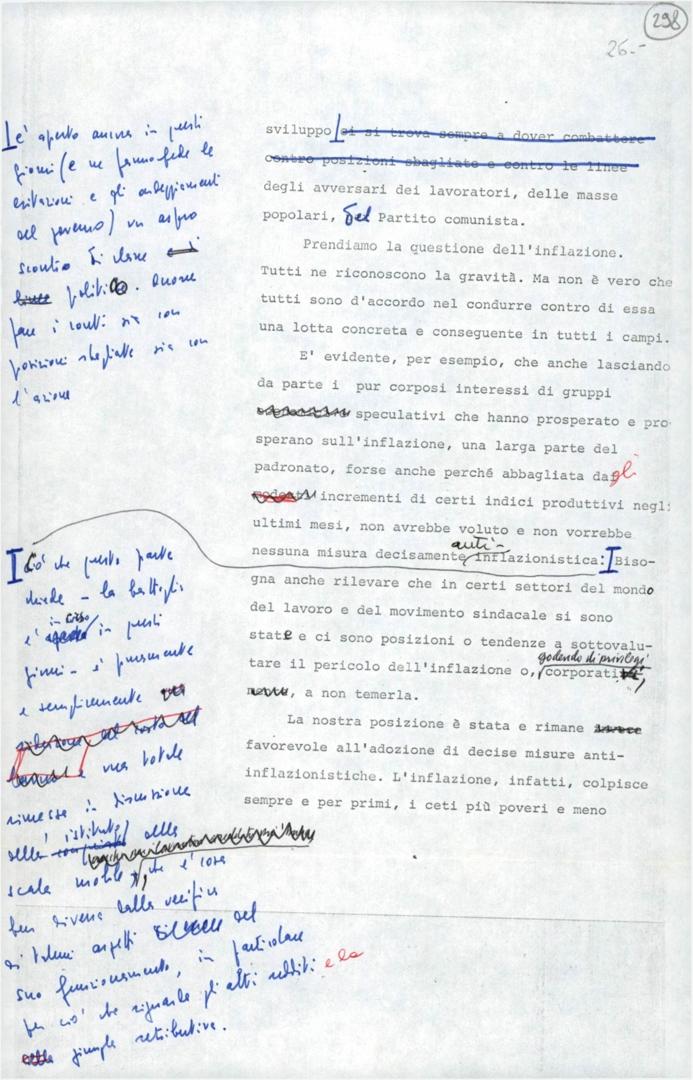 298
26.-
è aperto ancora in questi
giorni (e ne fanno fede le
esitazioni e gli ondeggiamenti
del governo) un aspro
scontro di classe
politico. Occorre
fare i conti sia con
posizioni sbagliate sia con
l'azione
sviluppo ci si trova sempre a dover combattere
contro posizioni sbagliate e contro le linee
degli avversari dei lavoratori, delle masse
popolari, del Partito comunista.
Prendiamo la questione dell'inflazione.
Tutti ne riconoscono la gravità. Ma non è vero che
tutti sono d'accordo nel condurre contro di essa
una lotta concreta e conseguente in tutti i campi.
E' evidente, per esempio, che anche lasciando
da parte i pur corposi interessi di gruppi
speculativi che hanno prosperato e pro-
sperano sull'inflazione, una larga parte del
padronato, forse anche perché abbagliata dagli
modesti incrementi di certi indici produttivi negli
ultimi mesi, non avrebbe voluto e non vorrebbe
nessuna misura decisamente anti-inflazionistica: Biso-
gna anche rilevare che in certi settori del mondo
del lavoro e del movimento sindacale si sono
state e ci sono posizioni o tendenze a sottovalu-
tare il pericolo dell'inflazione o, godendo di privilegi
corporativi, a non temerla.
La nostra posizione è stata e rimane
favorevole all'adozione di decise misure anti-
inflazionistiche. L'inflazione, infatti, colpisce
sempre e per primi, i ceti più poveri e meno
Ciò che questa parte
chiede - la battaglia
è in corso in questi
giorni - è puramente
e semplicemente
una totale
rimessa in discussione
dell'istituto della
scala mobile, che è cosa
ben diversa dalla verifica
di taluni aspetti del
suo funzionamento, in particolare
per ciò che riguarda gli altri redditi e la
giungla retributiva.